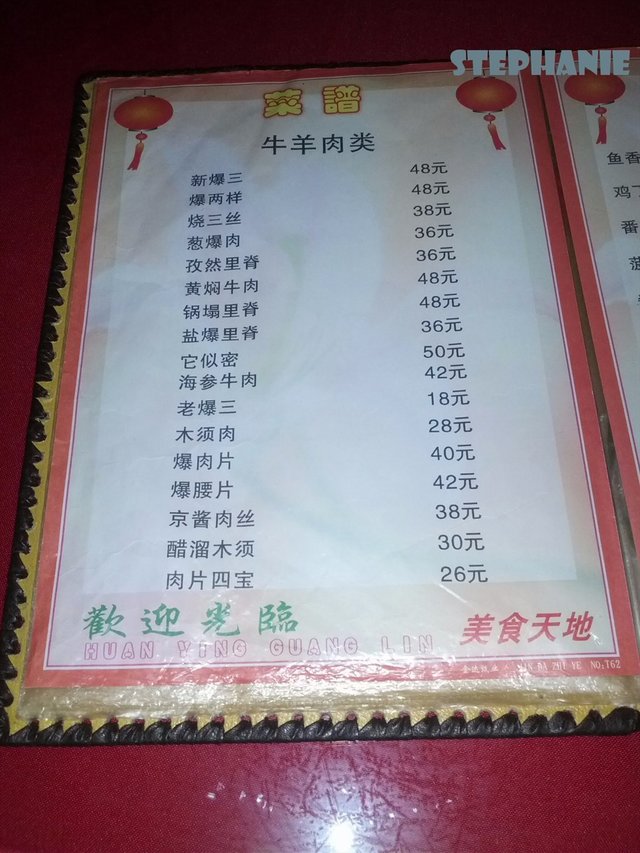 STEPHANIE
菜 谱
牛羊肉类
新爆三 48元
爆两样 48元
烧三丝 38元
葱爆肉 36元
孜然里脊 36元
黄焖牛肉 48元
锅塌里脊 48元
盐爆里脊 36元
它似密 50元
海参牛肉 42元
老爆三 18元
木须肉 28元
爆肉片 40元
爆腰片 42元
京酱肉丝 38元
醋溜木须 30元
肉片四宝 26元
歡迎光臨
HUAN YING GUANG LIN
美食天地
NO:T62
鱼香
鸡丁
番